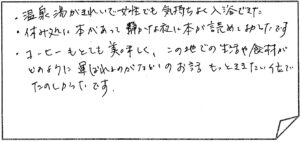 ・温泉湯がきれいで女性でも気持ちよく入浴できた
・休み処に本があって静かな程に本が読めて助したです
・コーヒーもとても美味しく、この地での生活や食材が
どのように運ばれるのかなどのお話もっとききたい位で
たのしかったです。